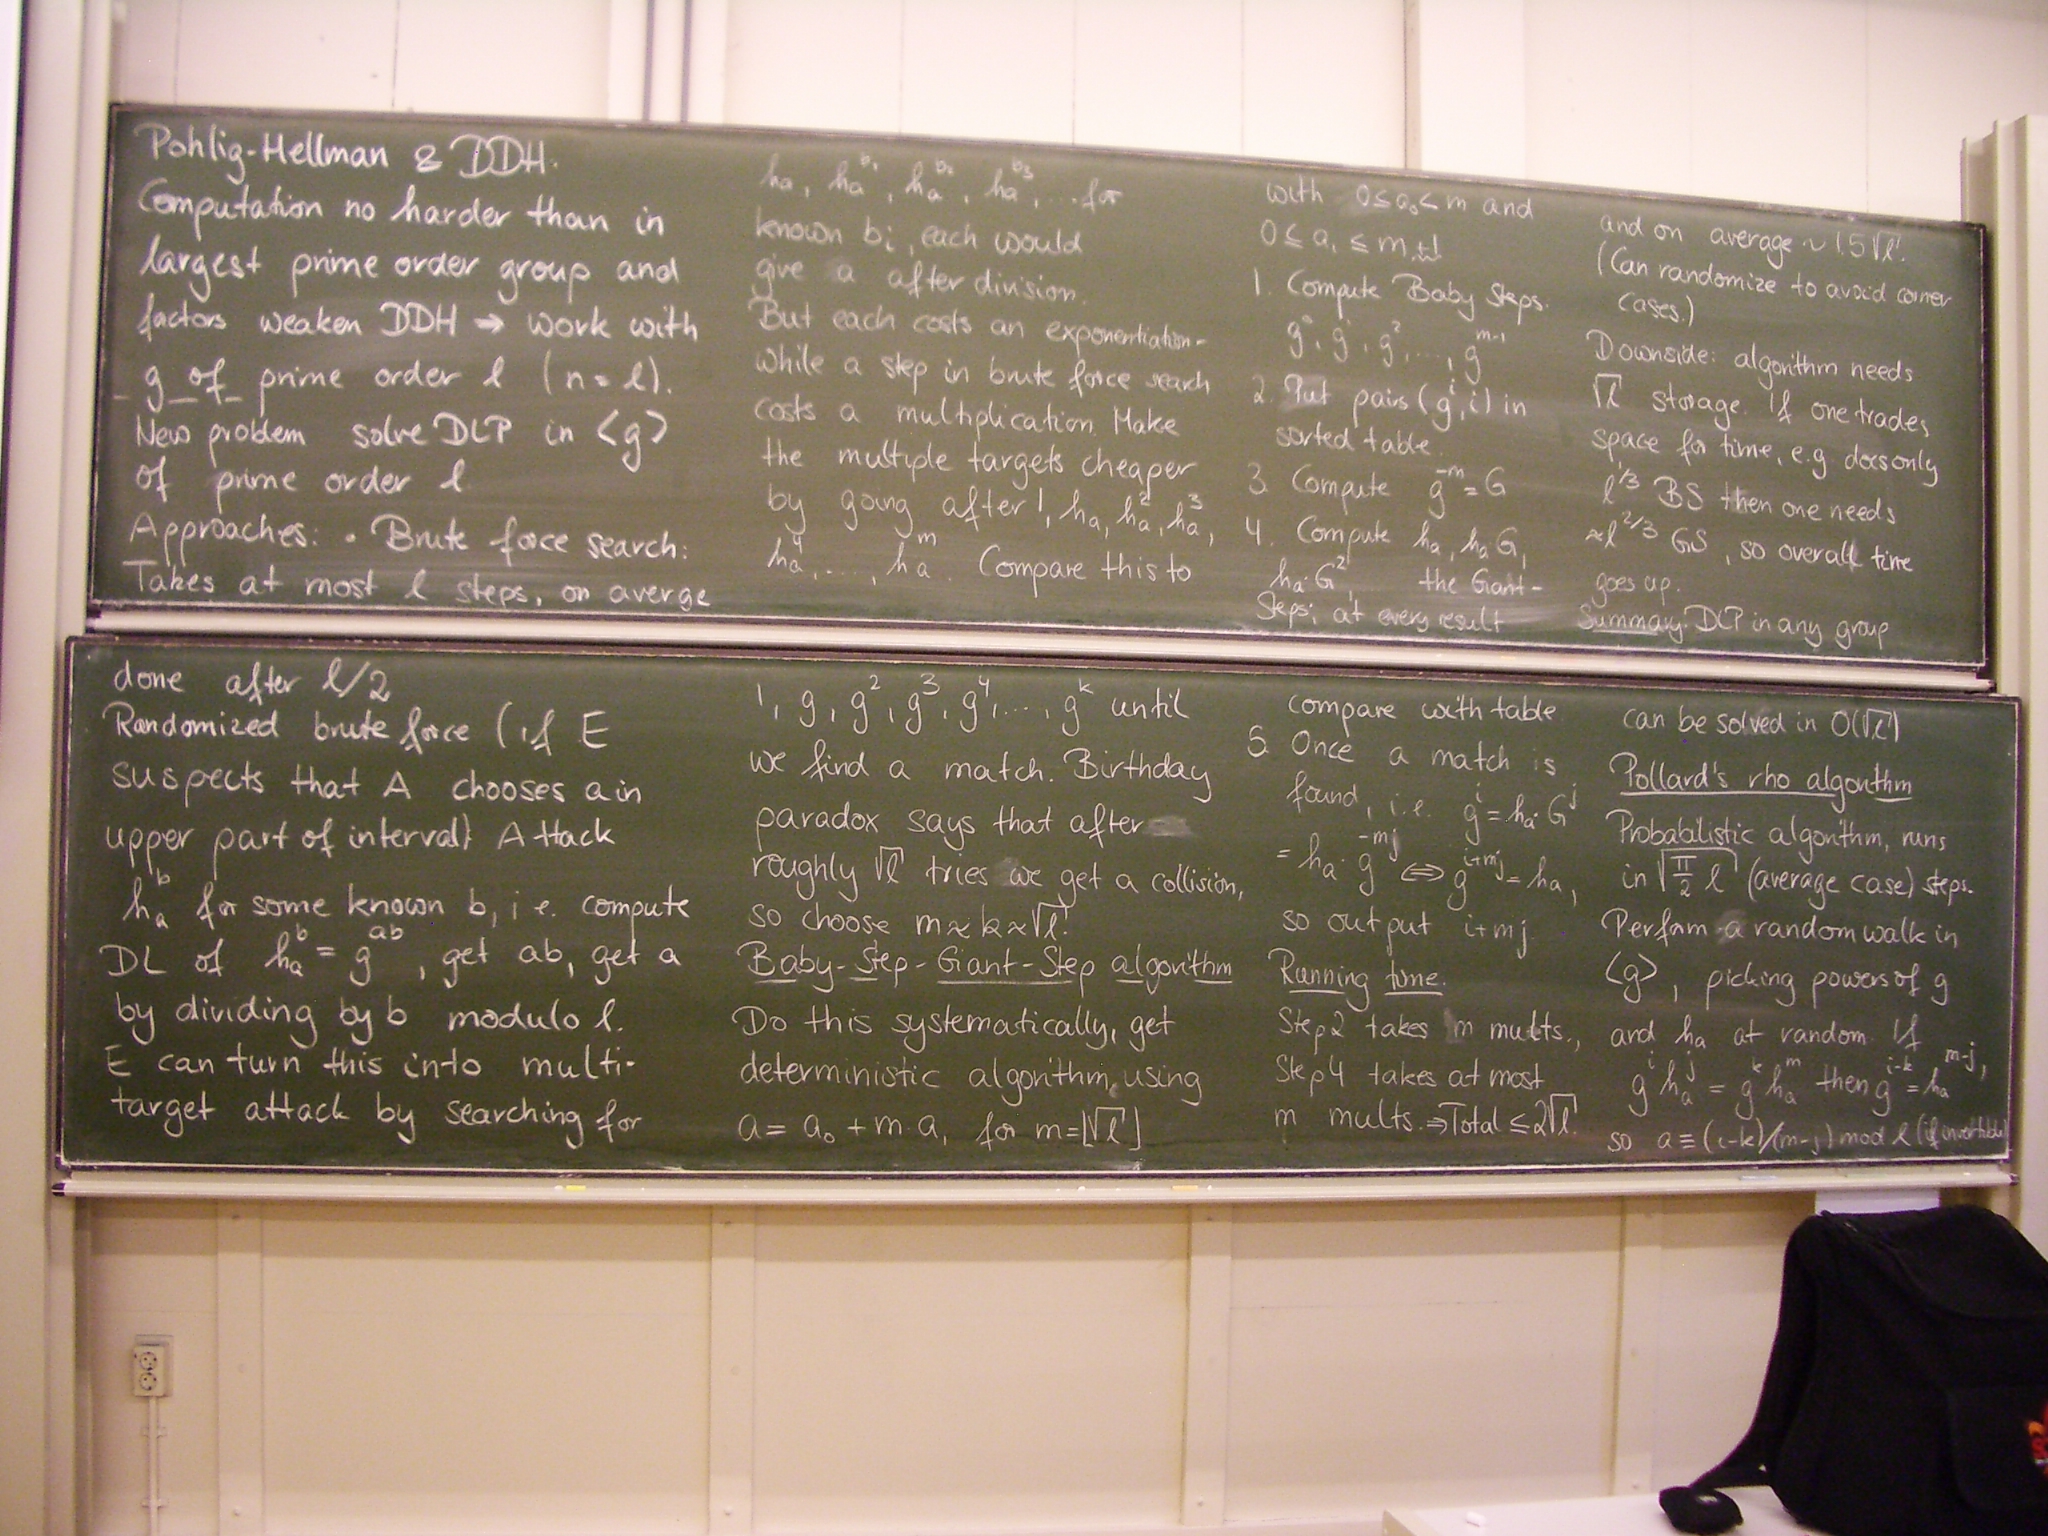 Pohlig-Hellman & DDH.
Computation no harder than in
largest prime order group and
factors weaken DDH → work with
g of prime order l (n=l).
New problem solve DLP in <g>
of prime order l
Approaches: • Brute force search:
Takes at most l steps, on averge
done after l/2
Randomized brute force (if E
suspects that A chooses a in
upper part of interval) Attack
hₐᵇ for some known b, i.e. compute
DL of hₐᵇ = gᵃᵇ, get ab, get a
by dividing by b modulo l.
E can turn this into multi-
target attack by searching for
hₐ, hₐ^b₁, hₐ^b₂, hₐ^b₃, ... for
known bᵢ, each would
give a after division.
But each costs an exponentiation-
while a step in brute force search
costs a multiplication. Make
the multiple targets cheaper
by going after 1, hₐ, hₐ², hₐ³,
hₐ⁴, ..., hₐᵐ. Compare this to
1, g, g², g³, g⁴, ..., gᵏ until
we find a match. Birthday
paradox says that after
roughly √l tries we get a collision,
so choose m ≈ k ≈ √l.
Baby-Step-Giant-Step algorithm
Do this systematically, get
deterministic algorithm, using
a = a₀ + m·a₁ for m = ⌊√l⌋
with 0 ≤ a₀ < m and
0 ≤ a₁ ≤ m+1
1. Compute Baby Steps.
g⁰, g¹, g², ..., gᵐ⁻¹
2. Put pairs (gⁱ, i) in
sorted table.
3. Compute g⁻ᵐ = G
4. Compute hₐ, hₐG,
hₐ·G², the Giant-
Steps; at every result
compare with table
5. Once a match is
found, i.e. gⁱ = hₐ·Gʲ
= hₐ·g⁻ᵐʲ ⇔ gⁱ⁺ᵐʲ = hₐ,
so output i+mj
Running time.
Step 2 takes m mults.,
Step 4 takes at most
m mults. ⇒ Total ≤ 2√l
and on average ~ 1.5√l.
(Can randomize to avoid corner
cases.)
Downside: algorithm needs
√l storage. If one trades
space for time, e.g. does only
l^1/3 BS then one needs
≈ l^2/3 GS, so overall time
goes up.
Summary: DLP in any group
can be solved in O(√l)
Pollard's rho algorithm
Probabilistic algorithm, runs
in √(π/2 l) (average case) steps.
Perform a random walk in
<g>, picking powers of g
and hₐ at random. If
gⁱhₐʲ = gᵏhₐᵐ then gⁱ⁻ᵏ = hₐᵐ⁻ʲ,
so a ≡ (i-k)/(m-j) mod l (if invertible)